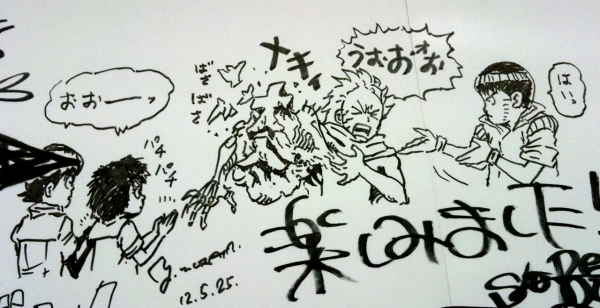 おおーーッ
パチ
パチ
ばさ
ばさ
メキィ
うおおおお
はいっ
12.5.25.
楽しみました!